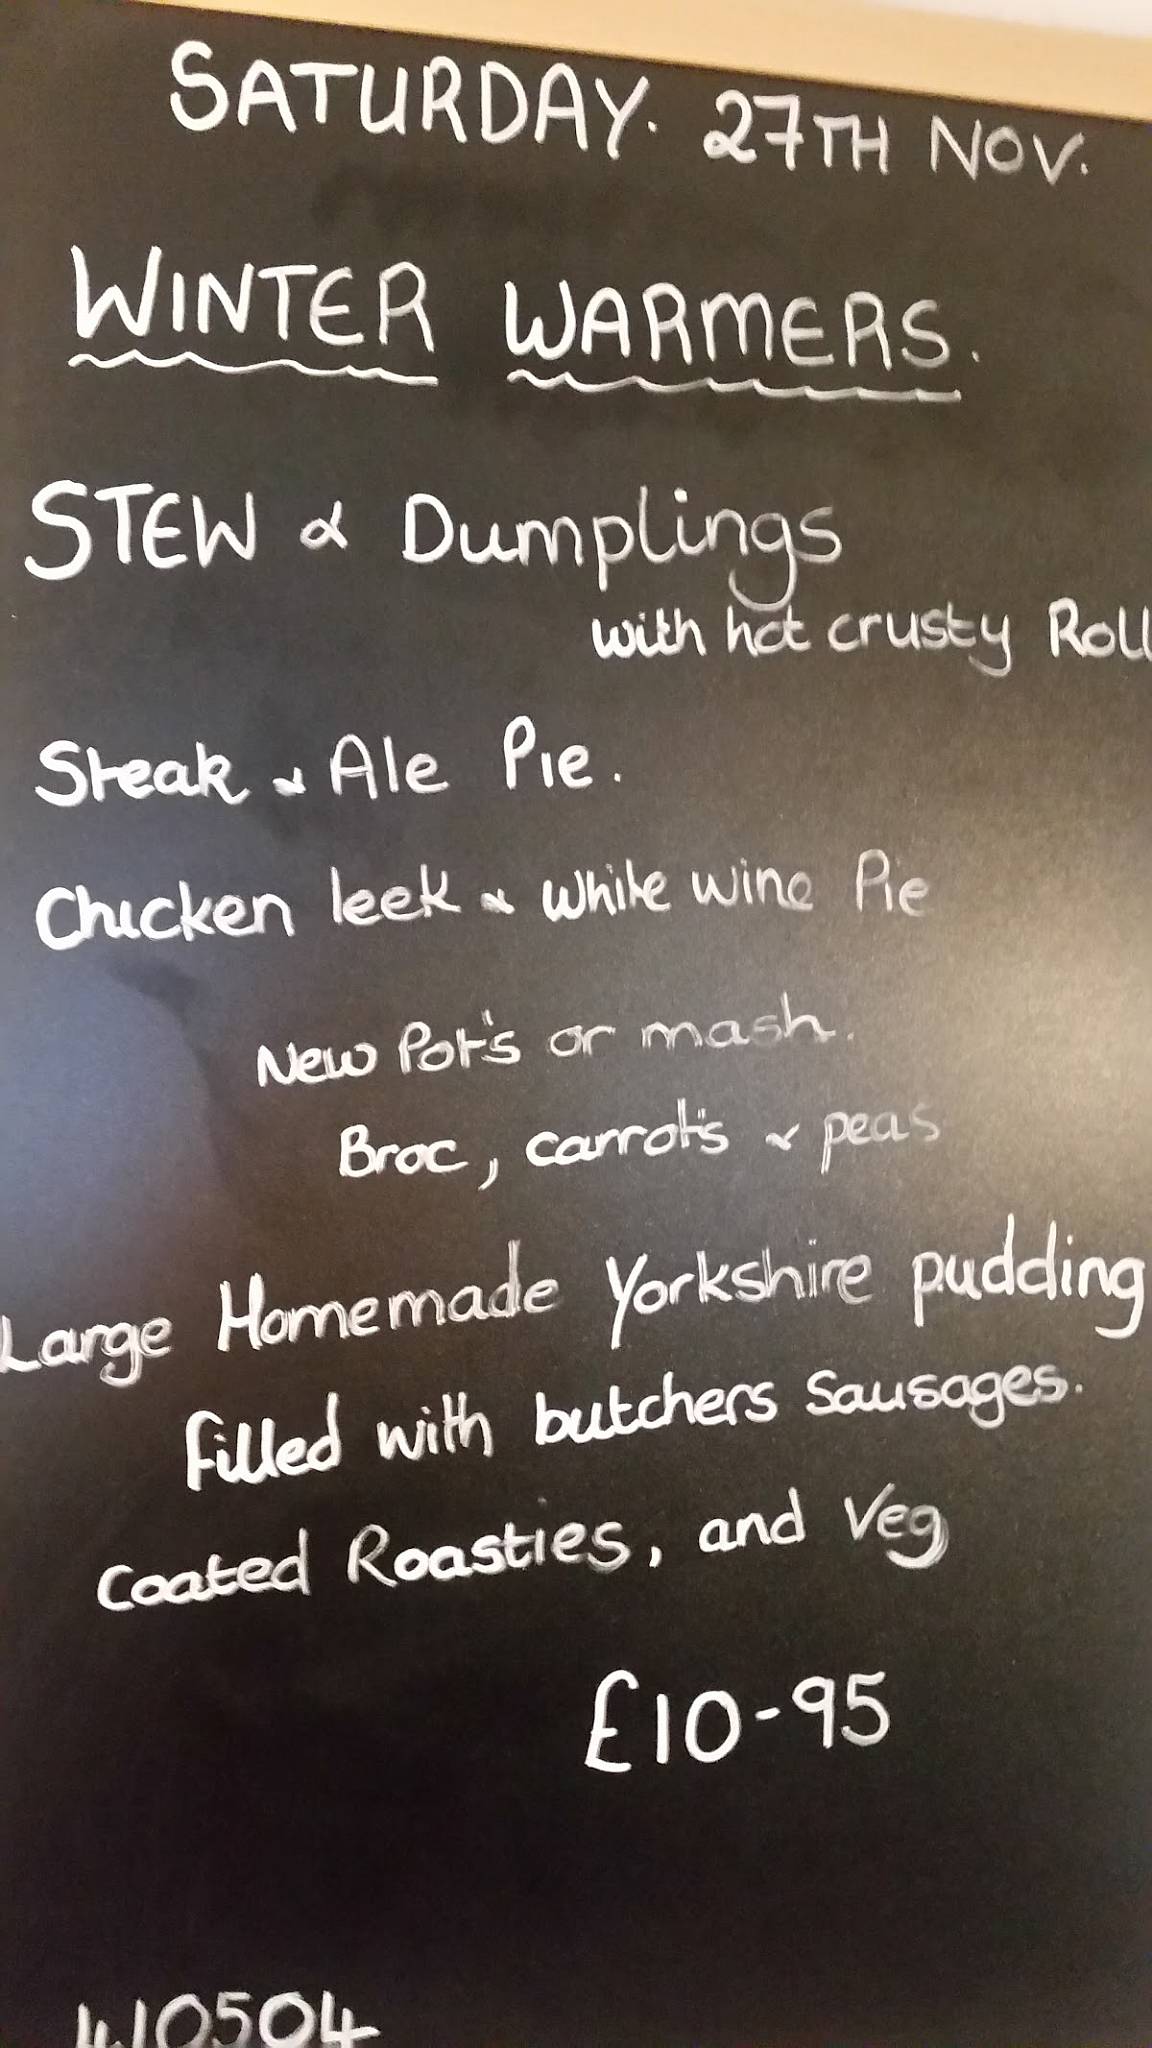 SATURDAY. 27TH NOV.
WINTER WARMERS.
STEW & Dumplings
with hot crusty Roll
Steak & Ale Pie.
Chicken leek & white wine Pie
New Pot's or mash.
Broc, carrot's & peas
Large Homemade Yorkshire pudding
filled with butchers Sausages.
Coated Roasties, and Veg
£10-95
410504